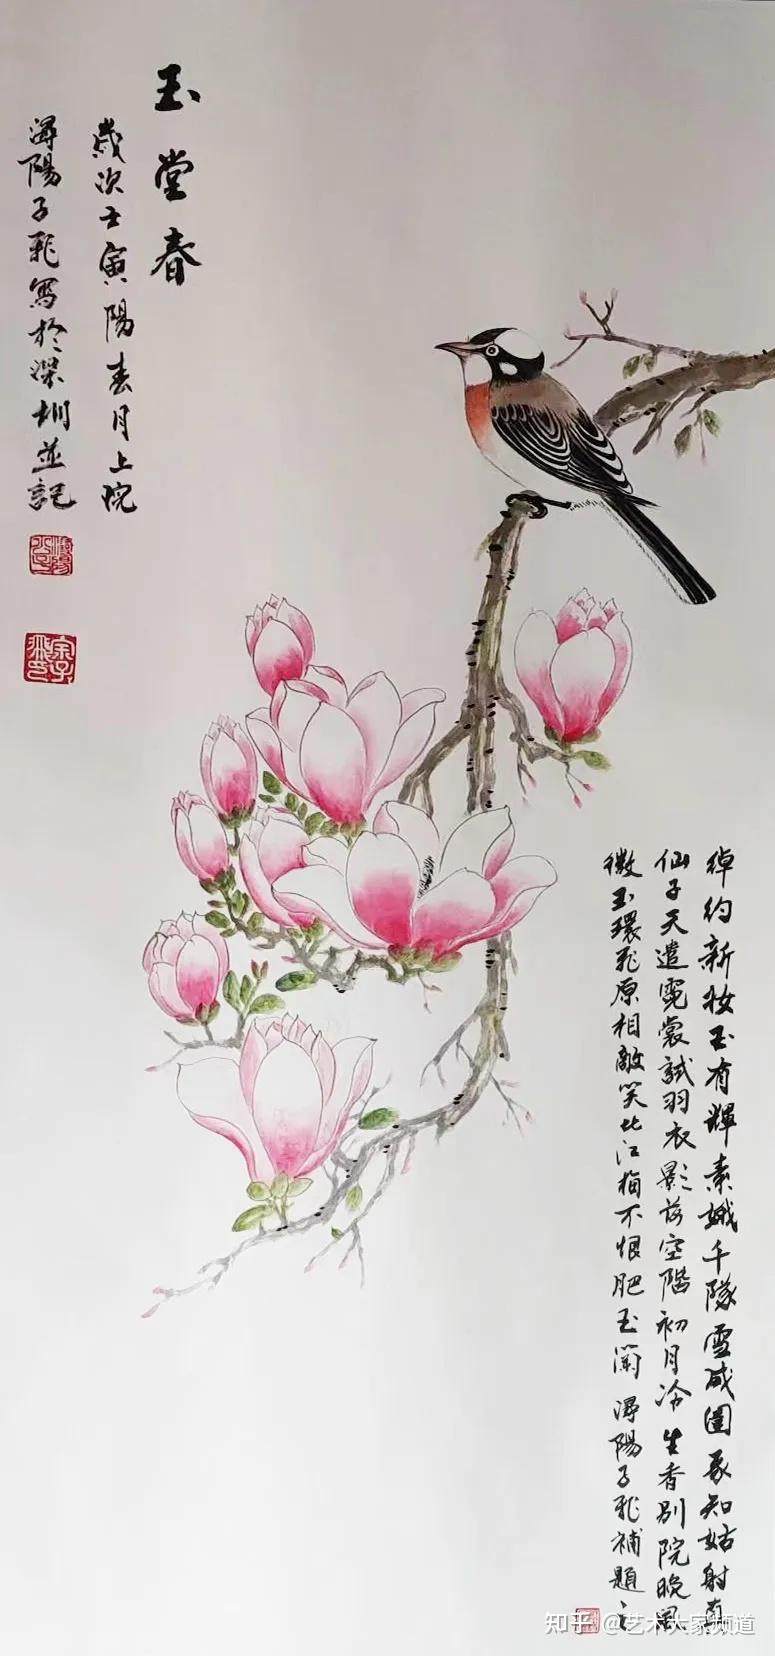 玉堂春
歲次壬寅陽春月上院
潯陽子飛寫於深圳並記
綽約新妝玉有輝素娥千隊雪成圍我知姑射真
仙子天遣霓裳試羽衣影落空階初月冷生香別院晚風
微玉環飛原相敵笑比江梅不恨肥玉蘭潯陽子飛補題之
知乎 @艺术大家频道